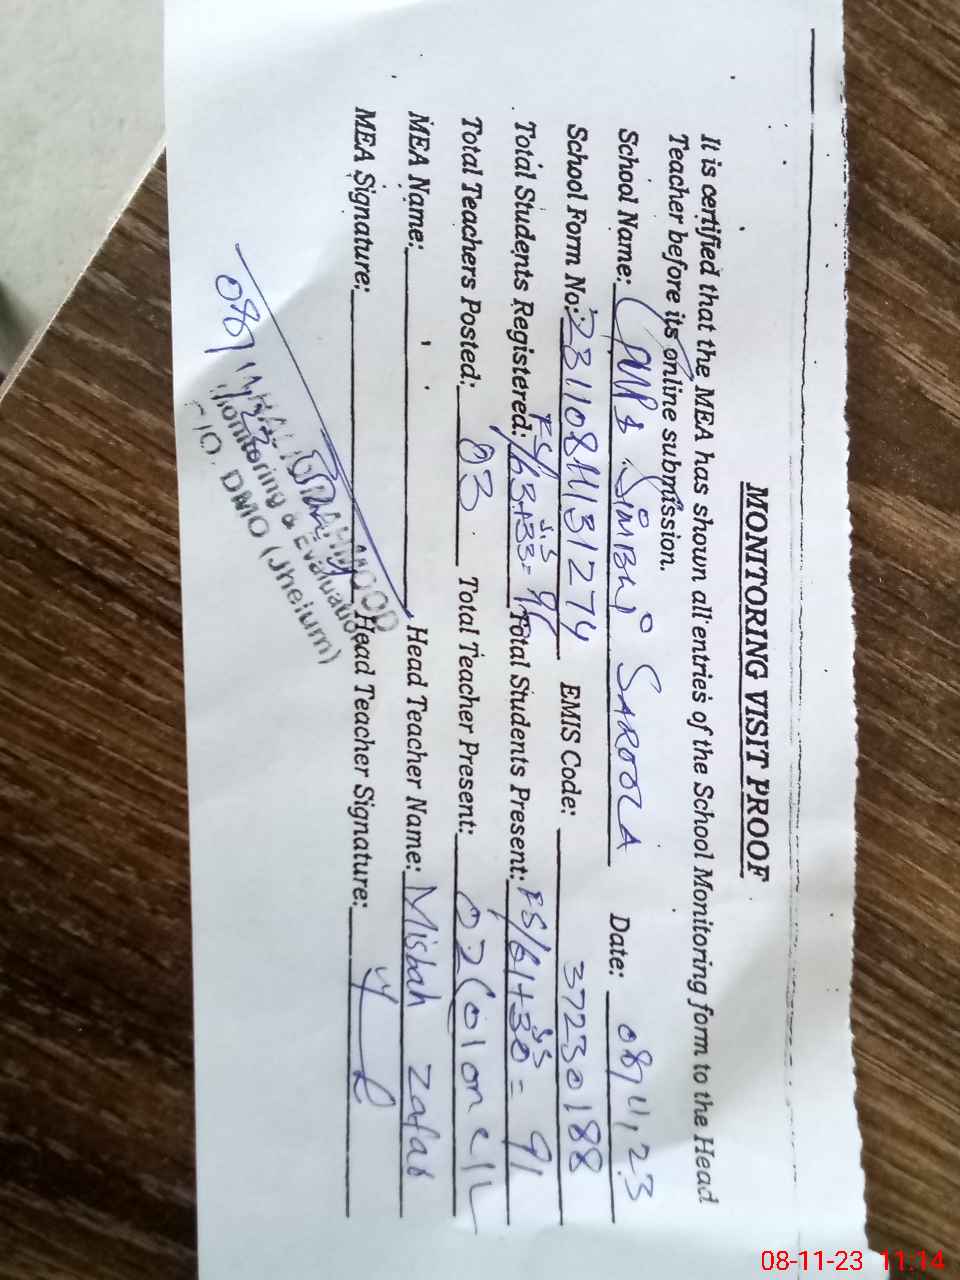 MONITORING VISIT PROOF
It is certified that the MEA has shown all entries of the School Monitoring form to the Head
Teacher before its online submission.
School Name: GMPS SIMBLI SAROOLA Date: 08/11/23
School Form No.: 231108H131274 EMIS Code: 37230188
Total Students Registered: ES/63+33= 96 Total Students Present: ES/61+30= 91
Total Teachers Posted: 03 Total Teacher Present: 02(01 on C/L
MEA Name: Head Teacher Name: Misbah Zafar
MEA Signature: Head Teacher Signature:
08/11/23
Monitoring & Evaluation
O/O, DMO (Jhelum)
08-11-23 11:14